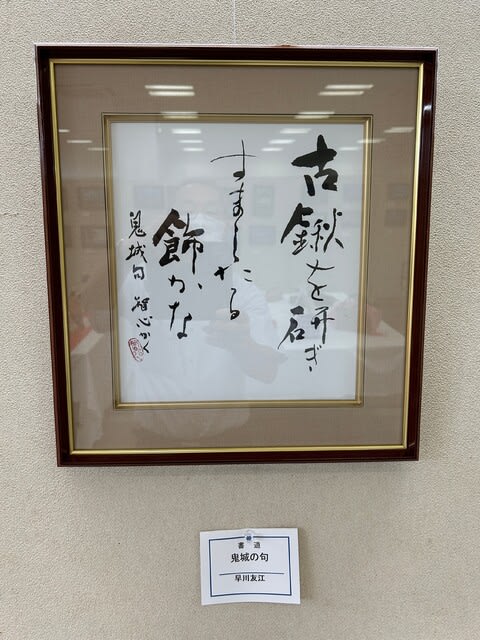 古鍬を研ぎ
すましたる
飾かな
鬼城句 智心かく
書道
鬼城の句
早川友江